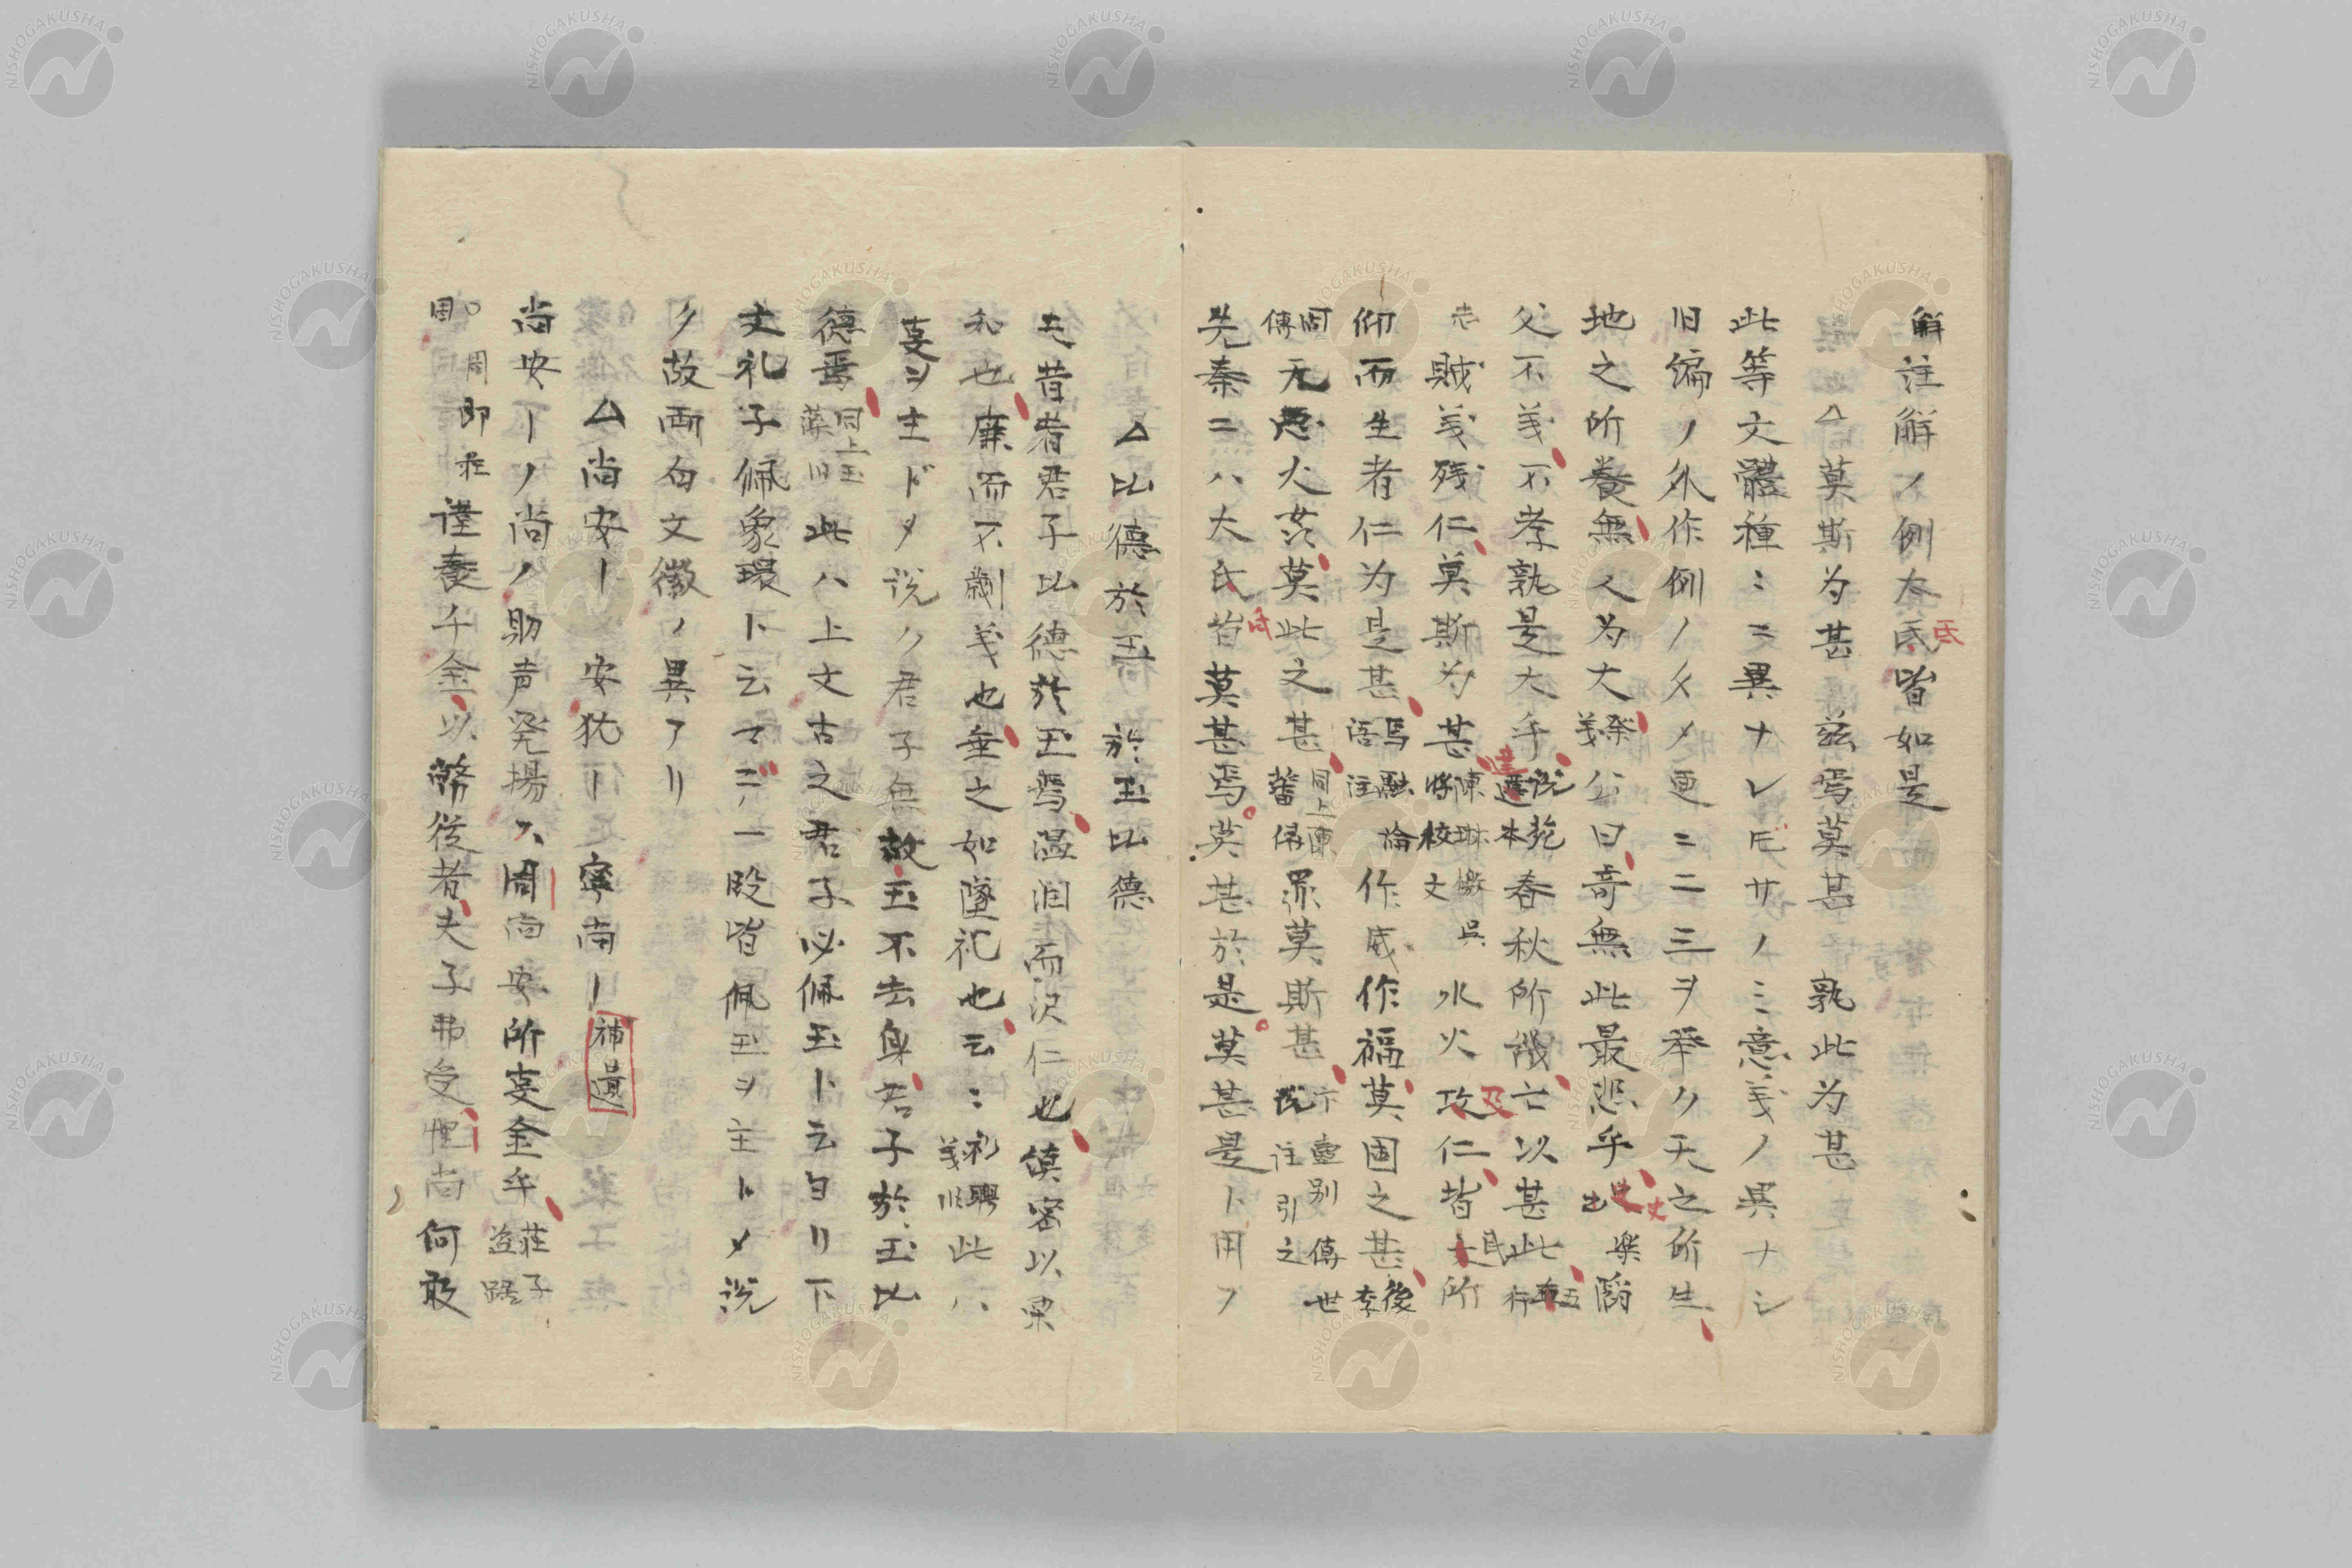 解注解ノ例大氐皆如是
△莫斯為甚 茲焉莫甚 孰此為甚
此等文體種〻ニ異ナレ𪜈サノミ意義ノ異ナシ
旧編ノ外作例ノタメ更ニ二三ヲ挙ク天之所生
地之所養無人為大祭義公曰奇無此最悲乎史楽陷
父不義不孝孰是大乎說苑建本春秋所譏亡以甚此五行
志賊義残仁莫斯為甚陳琳檄呉将校文水火攻仁皆民所
仰而生者仁为是甚馬融論語注作威作福莫固之甚後李
固傳无悪大茲莫此之甚同上蕃傳罪莫斯甚卞壺别傳世說注引之
先秦ニハ大氐皆莫甚焉莫甚於是莫甚是ト用フ
△比德於玉 於玉比德
夫昔者君子比德於玉焉温润而沢仁也縝密以栗
知也廉而不劌義也垂之如墜礼也云〻礼聘義此ハ
𫝆ヲ主ドメ説ク君子無故玉不去身君子於玉比
德焉同上玉藻旧此ハ上文古之君子必佩玉ト云ヨリ下
文礼子佩象環ト云マデ一段皆佩玉ヲ主トメ説
ク故両句文徽ノ異アリ
△尚安ー 安犹ー 寧南ー 補遺
尚安ーノ尚ノ助声発揚ス周尚安所事金乎莊子盗跖
周 周即荘謹養千金以幣從者夫子弗受悝尚何敢